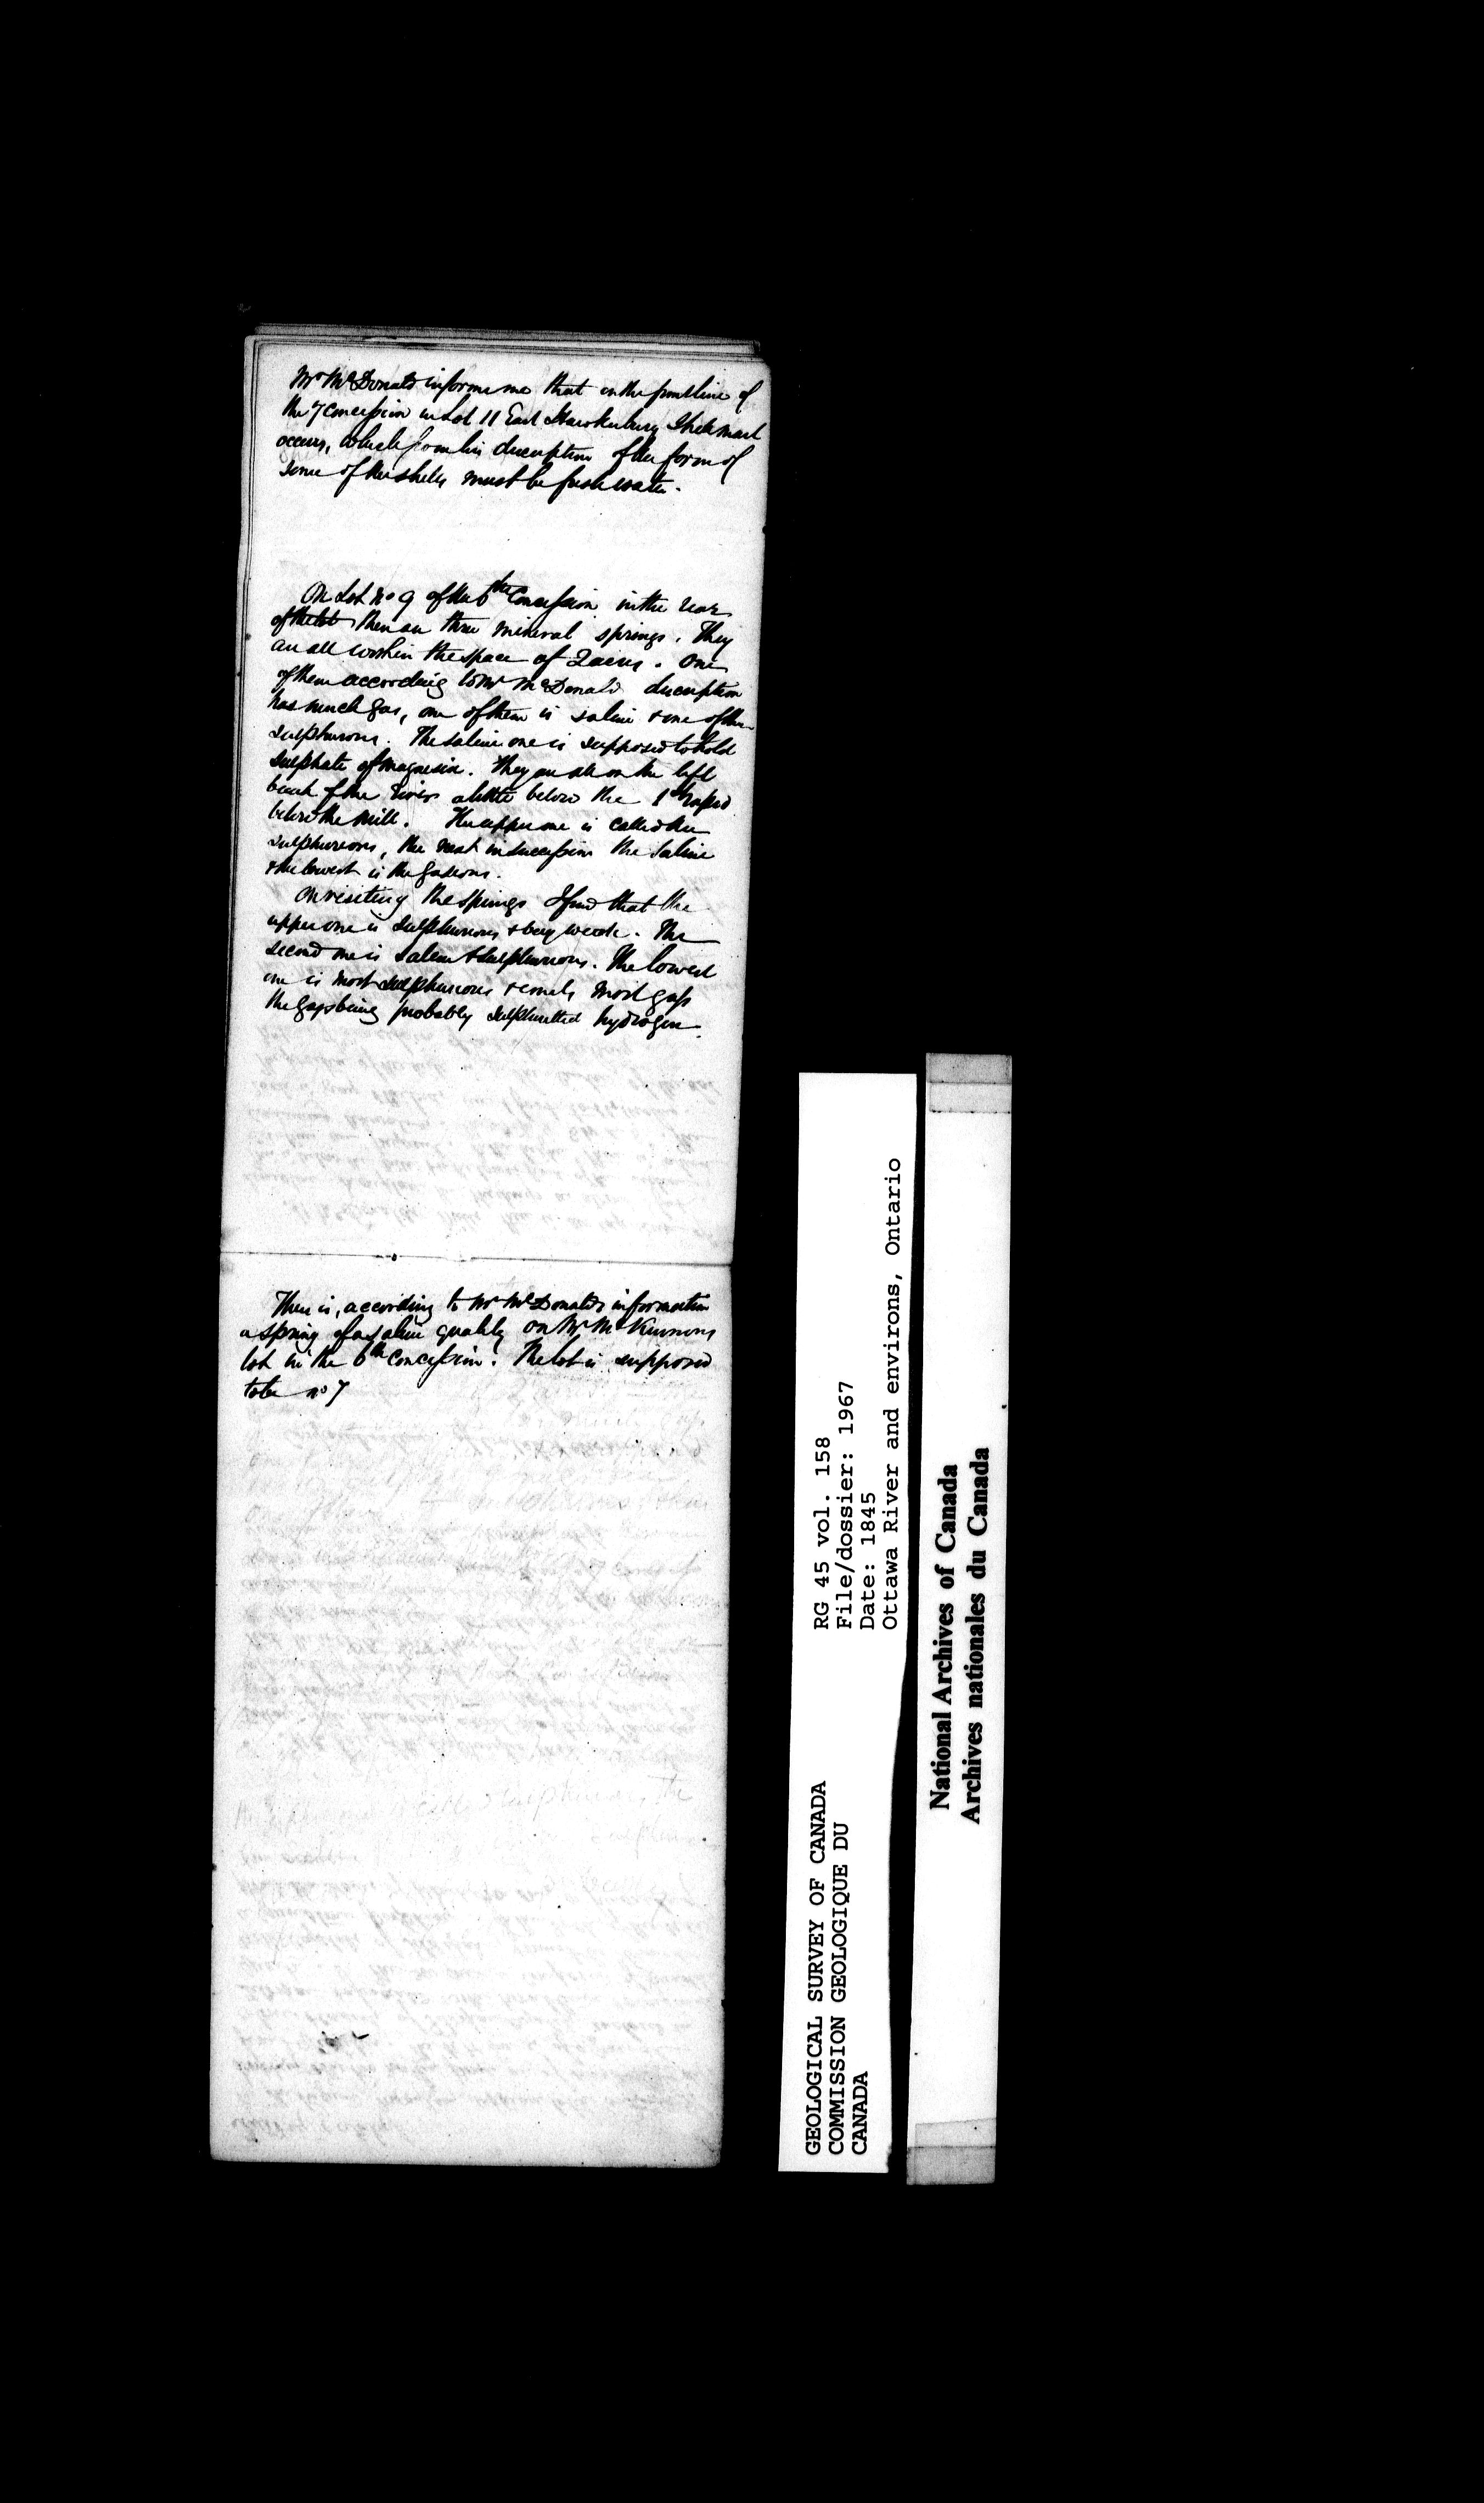 Mr McDonald informs me that on the front line of
the 7 Concession in Lot 11 East Hawkesbury Shell marl
occurs, which from his description of the form of
some of the shells must be fresh water.
On Lot no 9 of the 6th Concession in the rear
of the lot there are three mineral springs. They
are all within the space of 2 acres. One
of them according to Mr McDonalds description
has much gas, one of them is saline & one of them
sulphurous. The saline one is supposed to hold
sulphate of magnesia. They are all on the left
bank of the river a little below the 1st rapid
below the mill. The upper one is called the
sulphureous, the next in succession the saline
& the lowest is the gaseous.
On visiting the springs I find that the
upper one is sulphurous & very weak. The
second one is saline & sulphurous. The lowest
one is most sulphurous & emits most gass
the gass being probably sulphuretted hydrogen.
There is, according to Mr McDonalds information
a spring of a saline quality on Mr McKinnons
lot in the 6th Concession. The lot is supposed
to be no 7
RG 45 vol. 158
File/dossier: 1967
Date: 1845
Ottawa River and environs, Ontario
GEOLOGICAL SURVEY OF CANADA
COMMISSION GEOLOGIQUE DU
CANADA
National Archives of Canada
Archives nationales du Canada